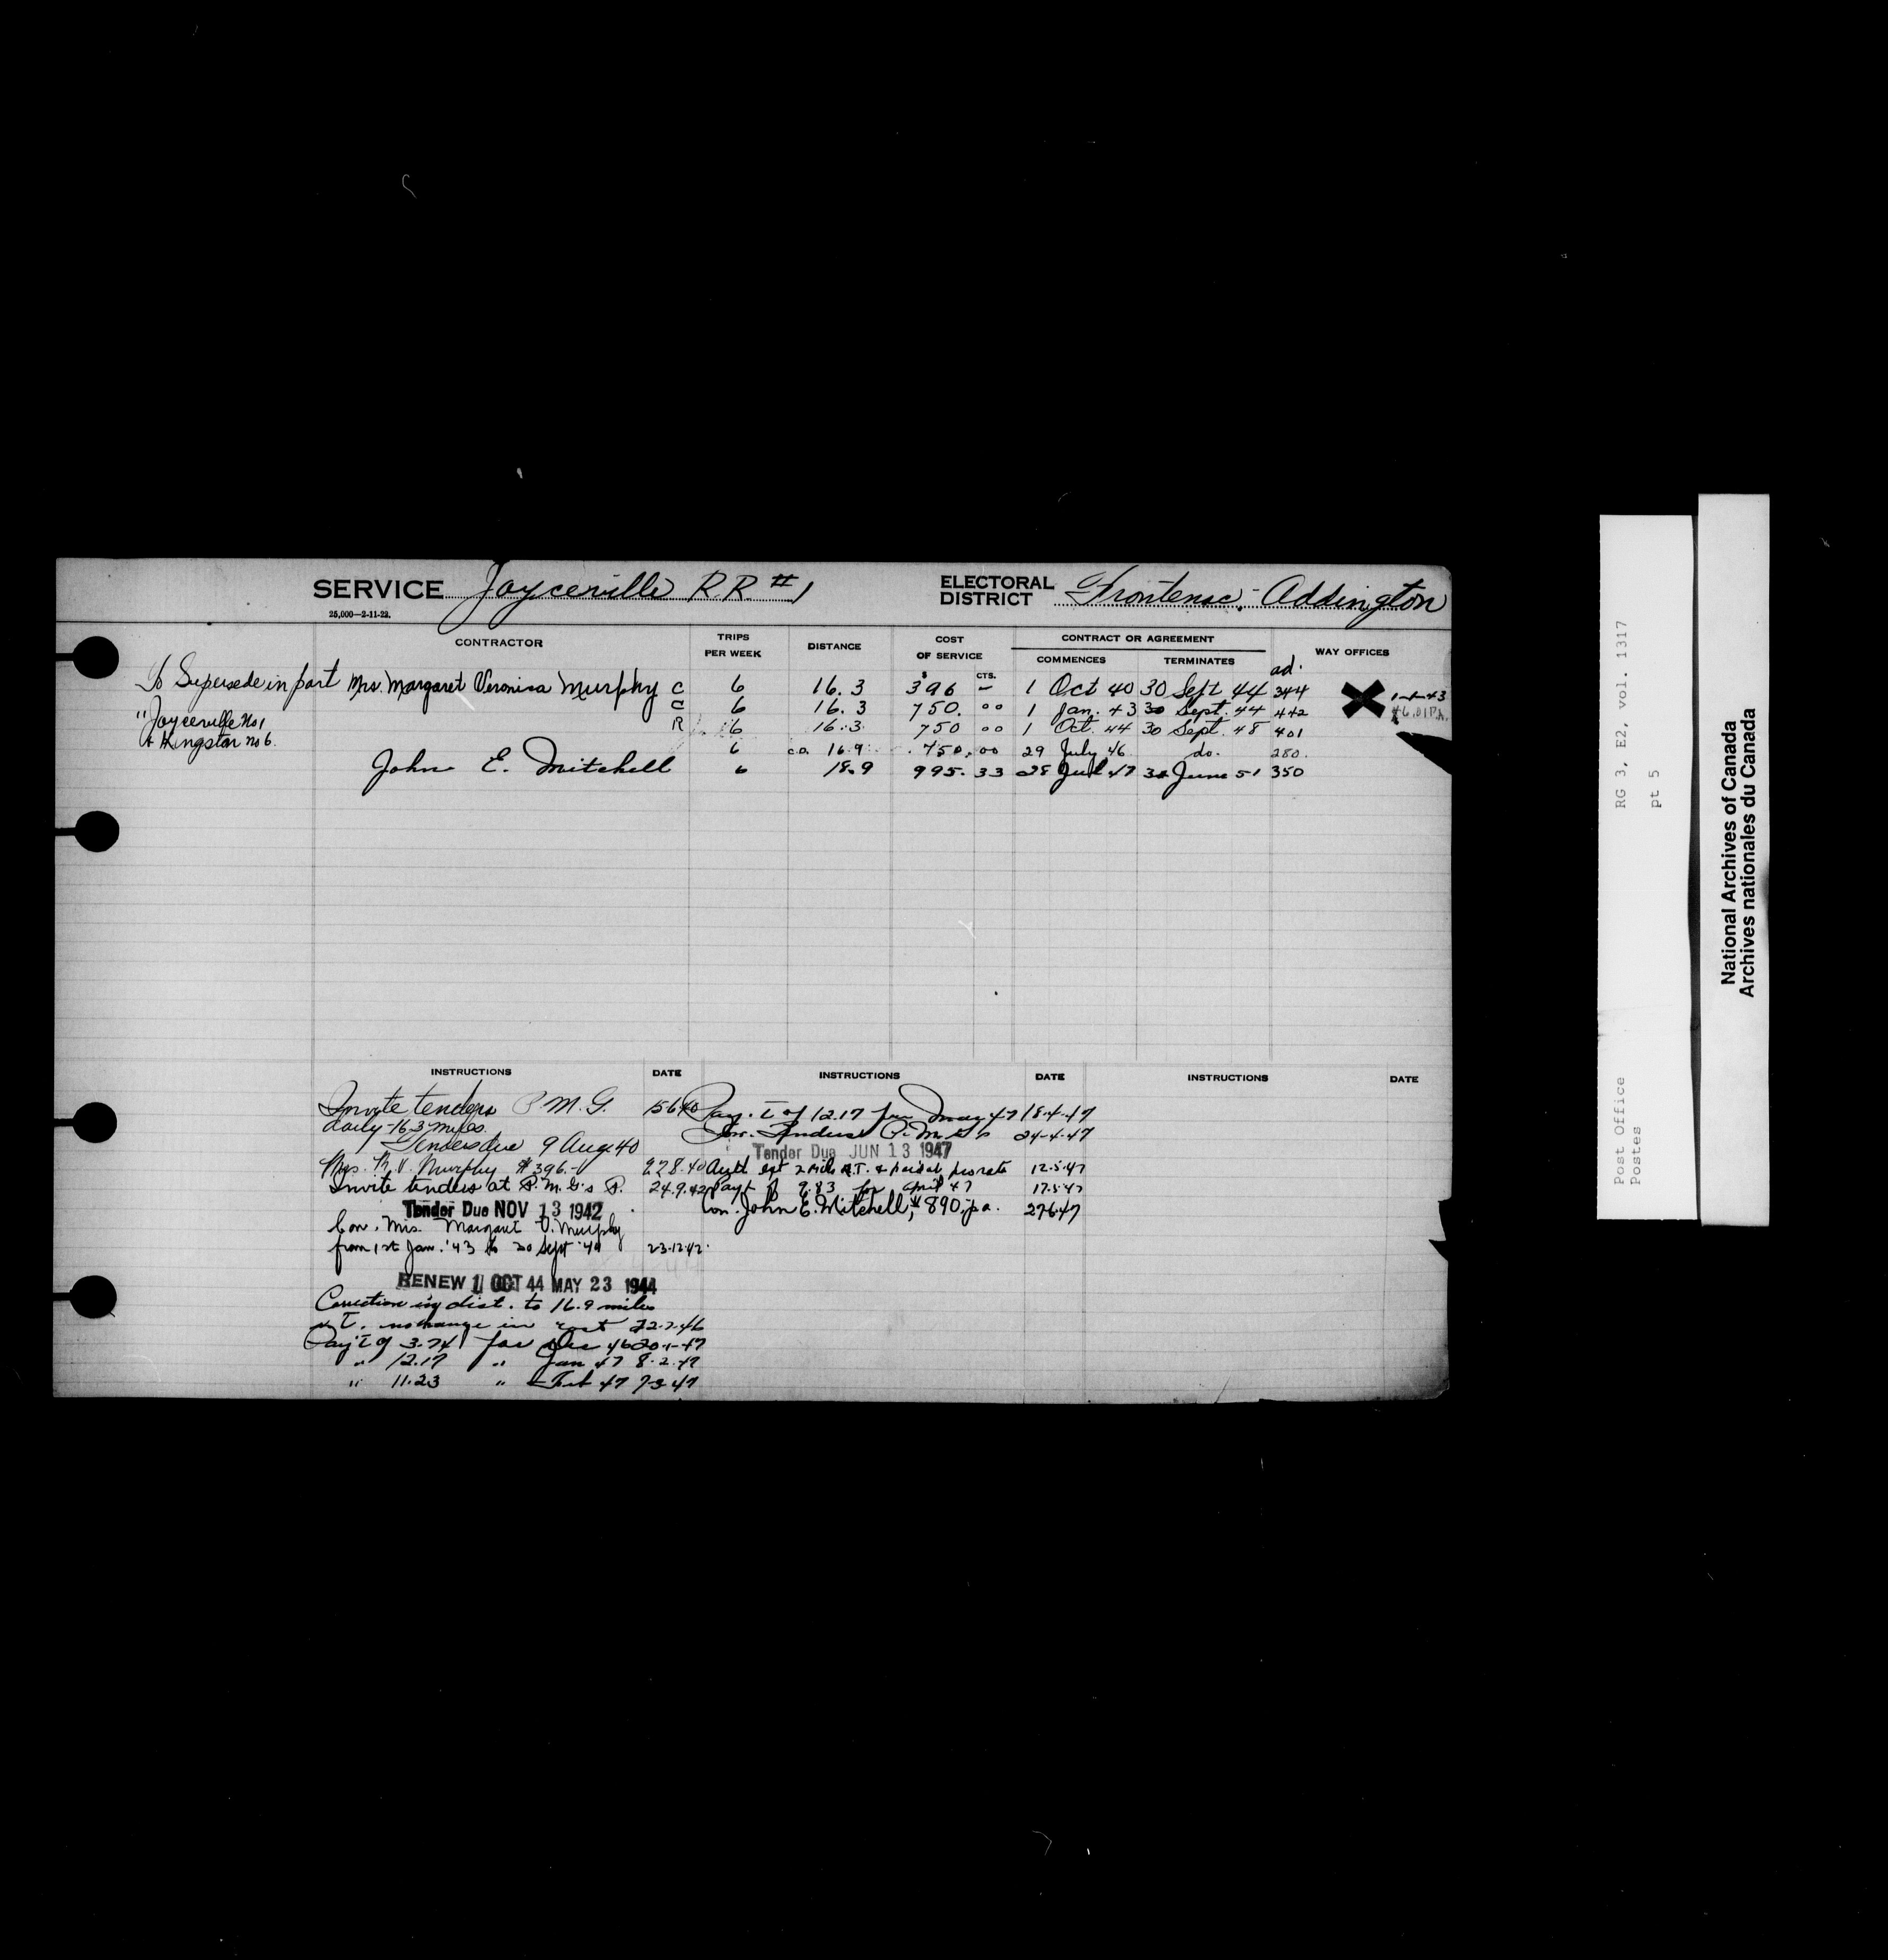 SERVICE Joyceville R.R. #1 ELECTORAL DISTRICT Frontenac-Addington
25,000—2-11-22.
CONTRACTOR TRIPS PER WEEK DISTANCE COST OF SERVICE CONTRACT OR AGREEMENT WAY OFFICES
$ CTS. COMMENCES TERMINATES ad.
To Supersede in part Mrs. Margaret Veronica Murphy C 6 16.3 396 – 1 Oct 40 30 Sept 44 344
" Joyceville No 1 C 6 16.3 750. 00 1 Jan. 43 30 Sept. 44 442 1-1-43
& Kingston no 6. R 6 16.3 750 00 1 Oct. 44 30 Sept. 48 401
6 ca. 16.9 750.00 29 July 46 do. 280.
John E. Mitchell 6 18.9 995.33 28 Jul 47 30 June 51 350
INSTRUCTIONS DATE INSTRUCTIONS DATE INSTRUCTIONS DATE
Invite tenders P.M.G. 15640
daily - 16.3 miles.
Tenders due 9 Aug. 40
Mrs. M. V. Murphy $396.- 22840
Invite tenders at P.M.G's P. 24.9.42
Tender Due NOV 13 1942
Con. Mrs. Margaret V. Murphy
from 1st Jan. '43 to 30 Sept '44 23.12.42.
RENEW 1 OCT 44 MAY 23 1944
Correction in dist. to 16.9 miles
no change in cost 22.7.46
Pay't of 3.74 for Dec 46 20-1-47
" 12.17 " Jan 47 8.2.47
" 11.23 " Feb 47 7-3-47
Pay. t of 12.17 for May 47 18.4.47
Inv. Tenders P.M.G's 24-4-47
Tender Due JUN 13 1947
Auth ext 2 mile R.T. & pro rata 12.5.47
Payt of 9.83 for April 47 17.5.47
Con. John E. Mitchell, $890. p.a. 27647
Post Office RG 3, E2, vol. 1317
Postes pt 5
National Archives of Canada
Archives nationales du Canada